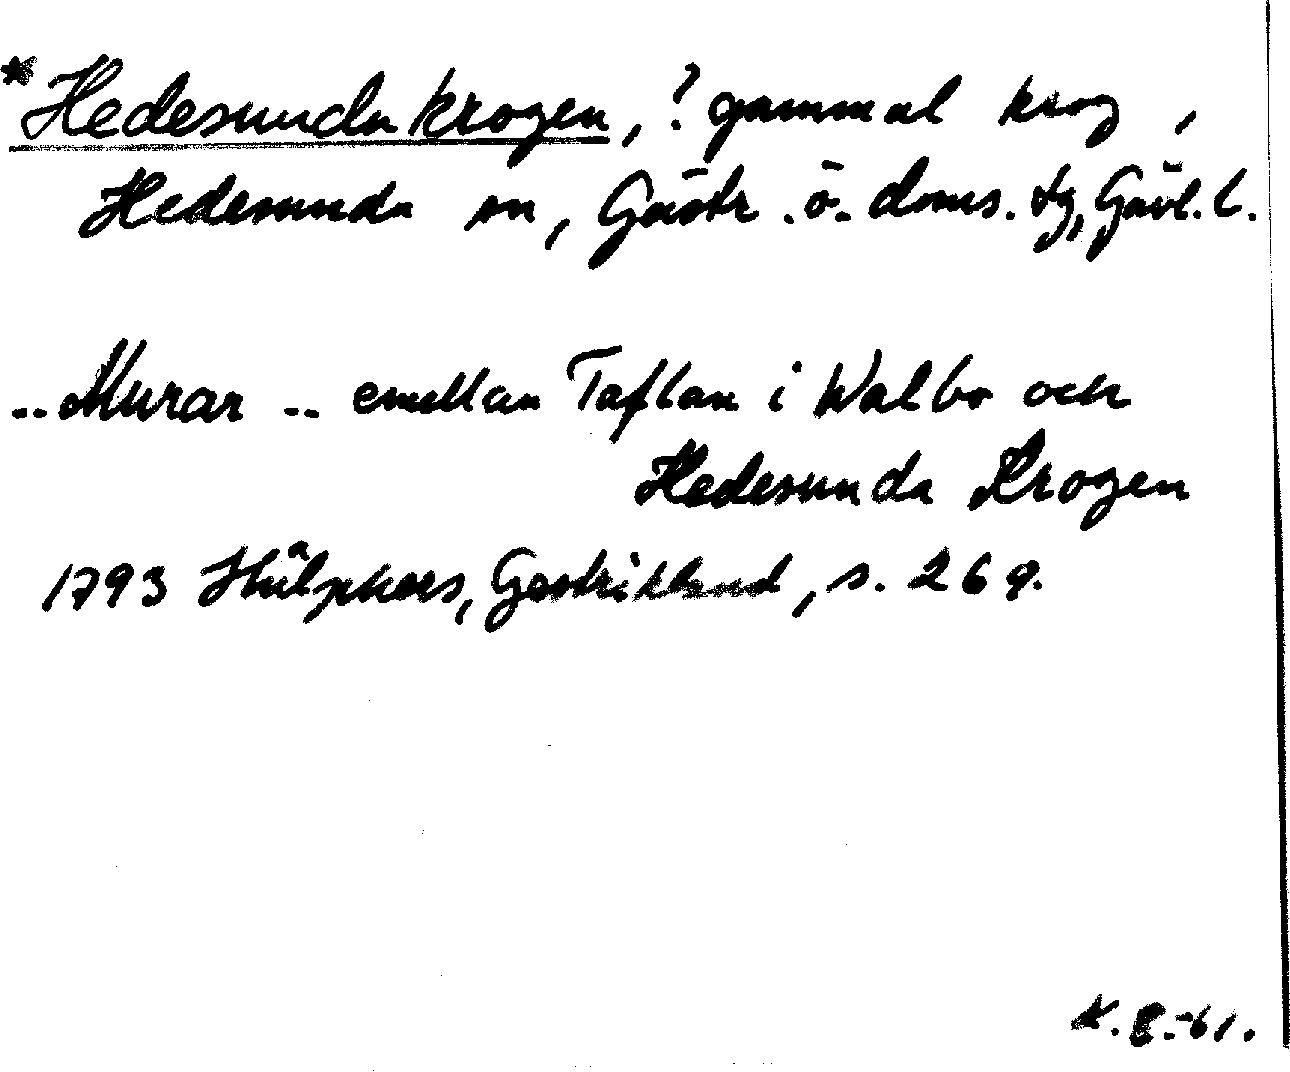 *Hedesundakrogen, ? gammal krog,
Hedesunda sn, Gästr. ö. doms. tg, Gävl. l.
..Murar .. emellan Taflan i Walbo och
Hedesunda Krogen
1793 Hülphers, Gestrikland, s. 269.
K. B. -61.